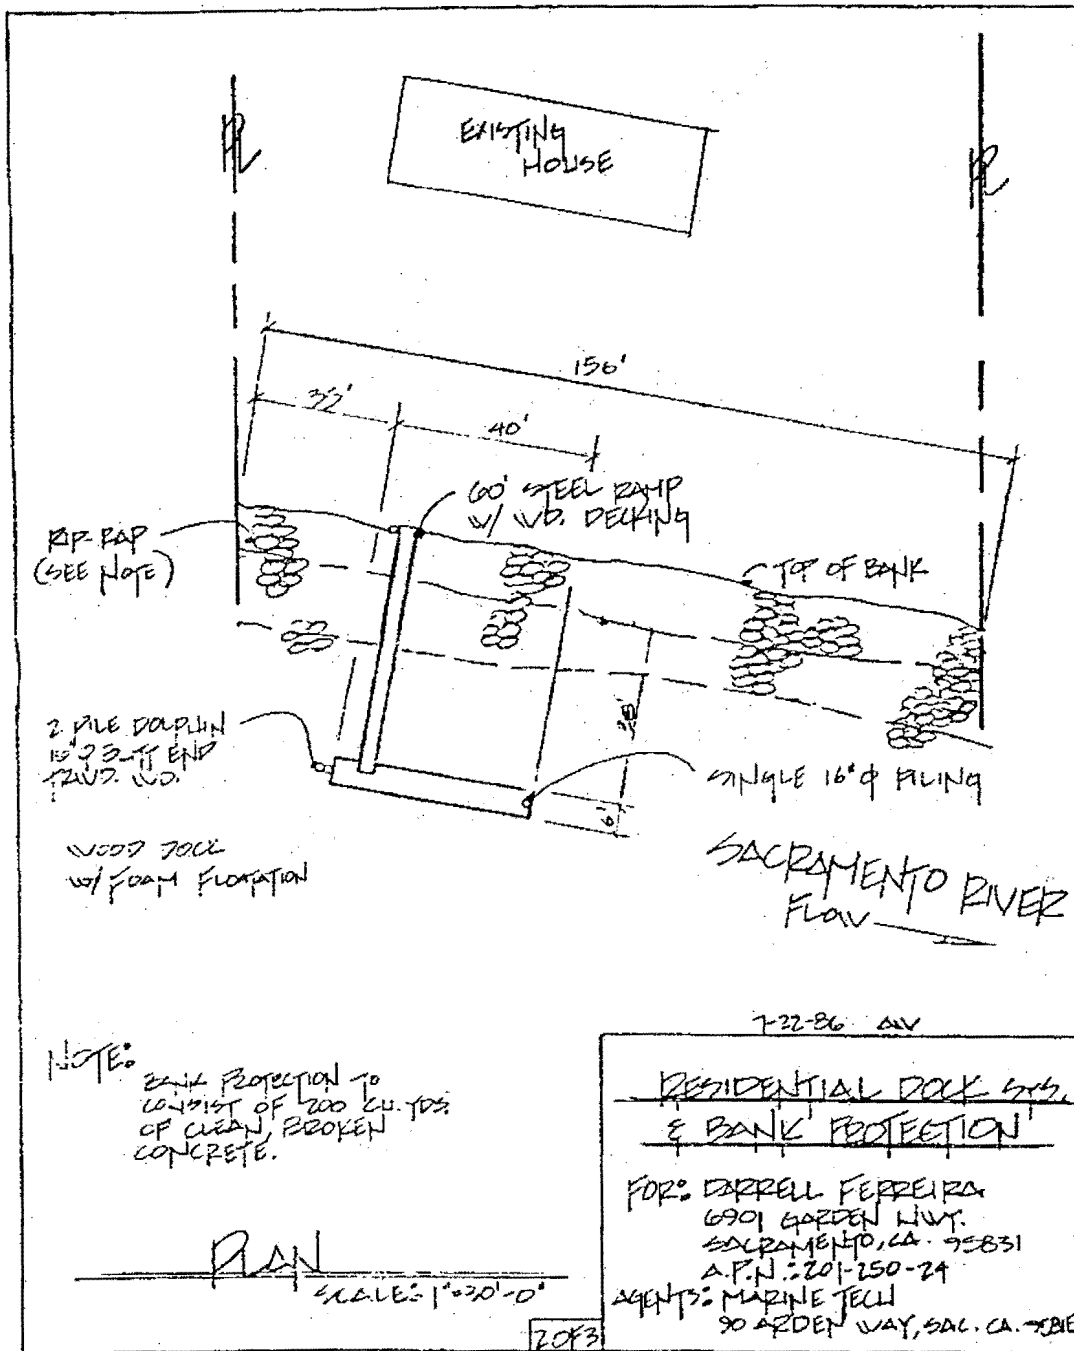 PL
EXISTING
HOUSE
PL
156'
40'
60' STEEL RAMP
W/ WD. DECKING
RIP-RAP
(SEE NOTE)
TOP OF BANK
2 PILE DOLPHIN
END
SINGLE 16" Φ PILING
6'
WOOD DOCK
W/ FOAM FLOATATION
SACRAMENTO RIVER
FLOW
7-22-86
NOTE:
BANK PROTECTION TO
CONSIST OF 200 CU. YDS.
OF CLEAN, BROKEN
CONCRETE.
PLAN
SCALE: 1"=30'-0"
RESIDENTIAL DOCK SYS.
& BANK PROTECTION
FOR: DARRELL FERREIRA
6901 GARDEN HWY.
SACRAMENTO, CA. 95831
A.P.N.: 201-250-24
AGENTS: MARINE TECH
90 ARDEN WAY, SAC. CA.
2 OF 3